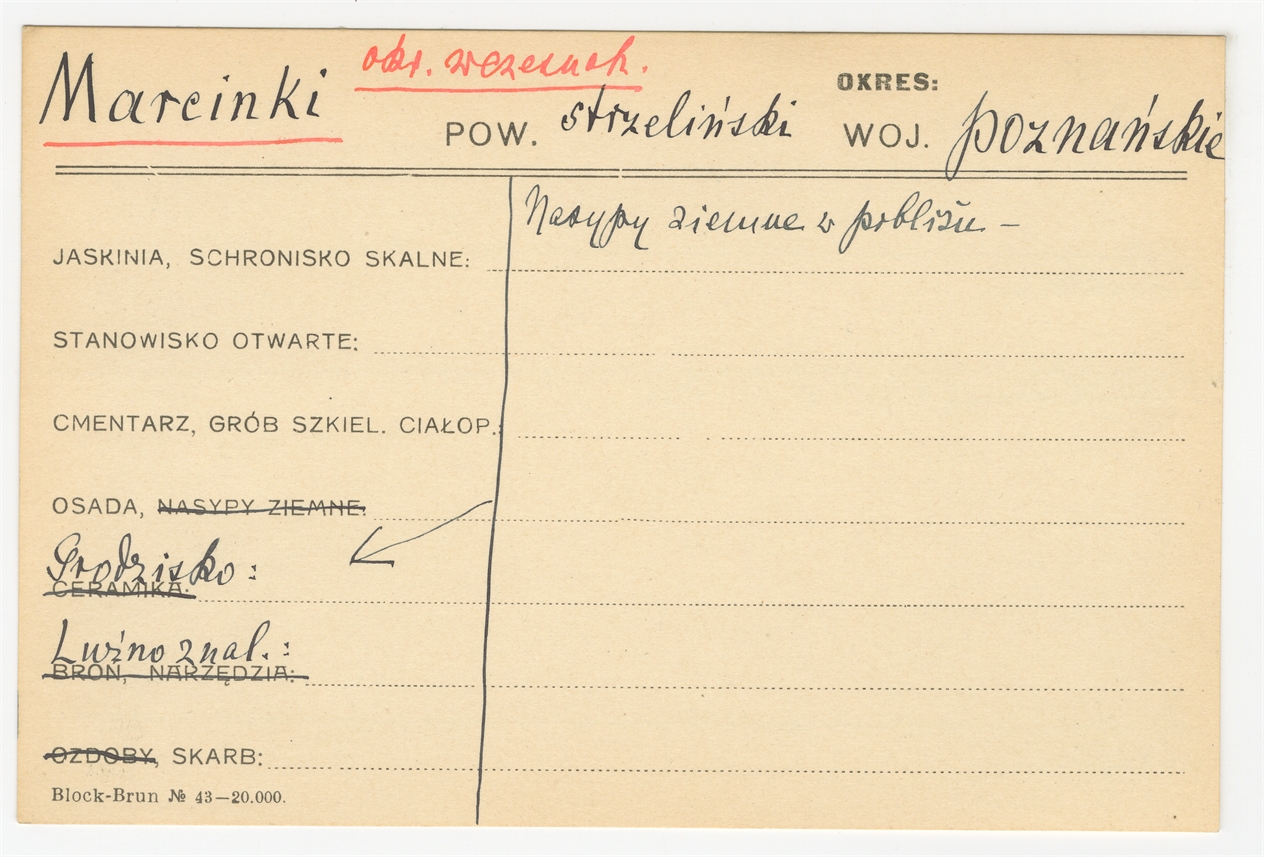 Marcinki okr. wczesnoh. OKRES:
POW. strzeliński WOJ. poznańskie
Nasypy ziemne w pobliżu –
JASKINIA, SCHRONISKO SKALNE:
STANOWISKO OTWARTE:
CMENTARZ, GRÓB SZKIEL. CIAŁOP.:
OSADA, NASYPY ZIEMNE:
Grodzisko:
CERAMIKA:
Luźno znal.:
BROŃ, NARZĘDZIA:
OZDOBY, SKARB:
Block-Brun № 43—20.000.